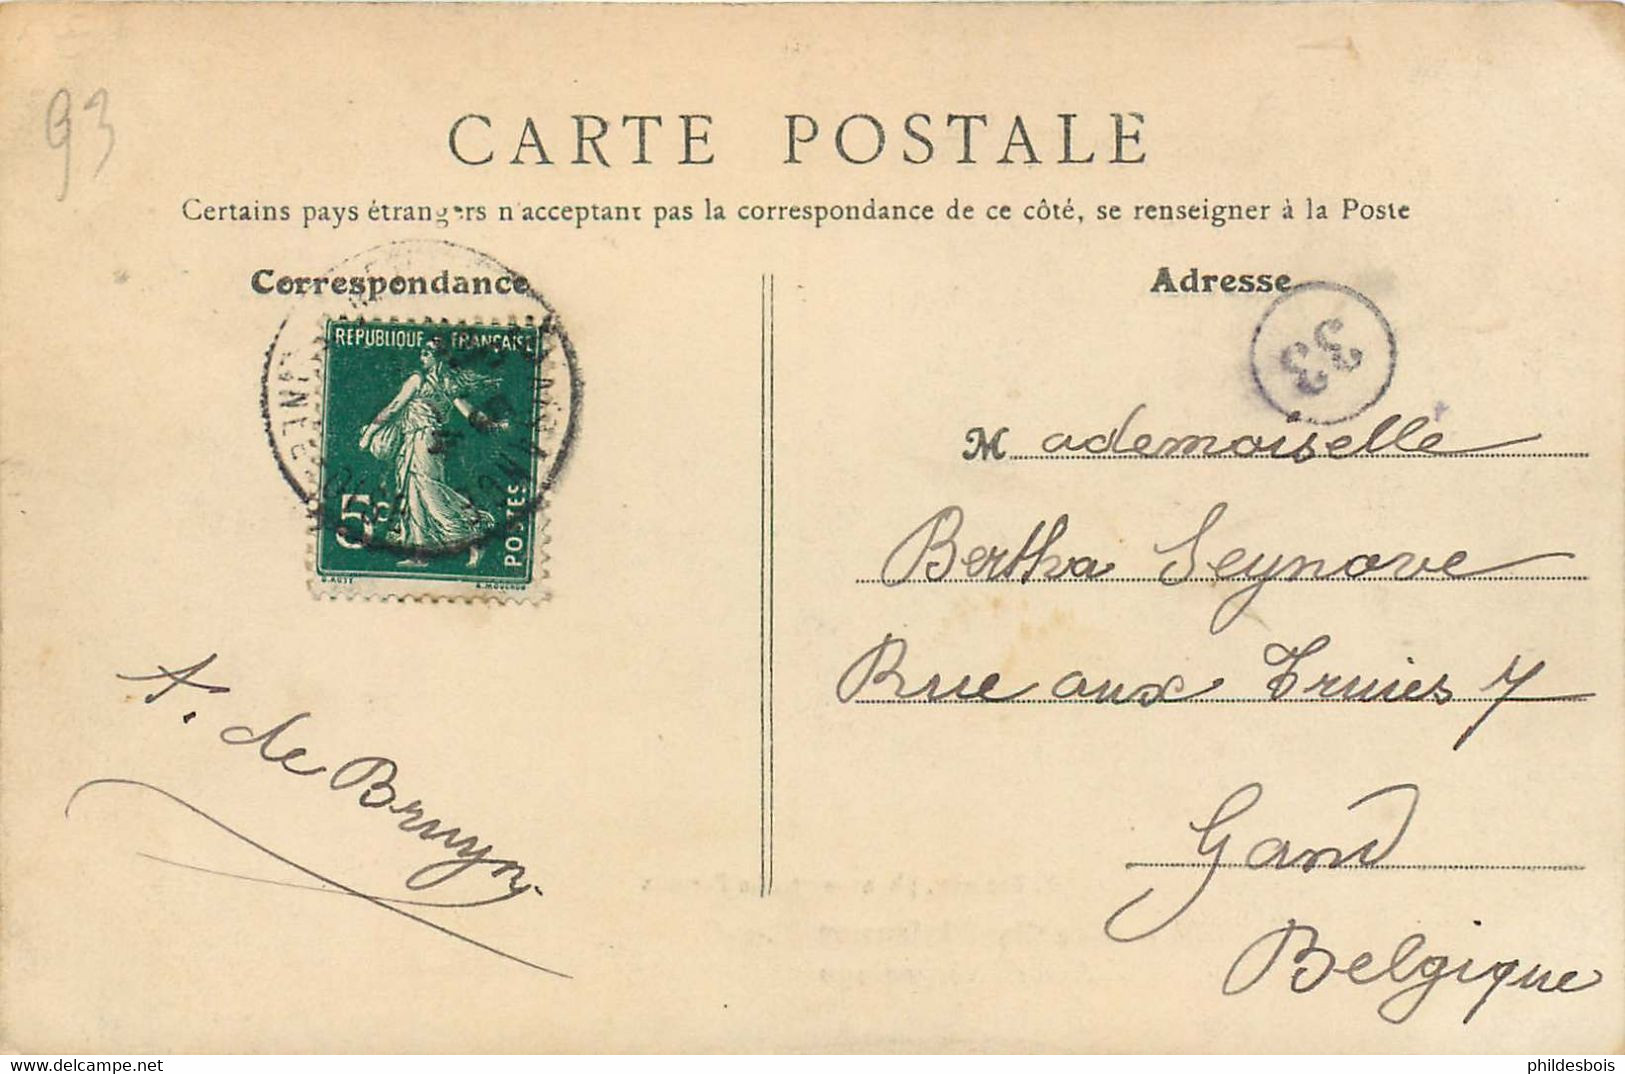 93
CARTE POSTALE
Certains pays étrangers n'acceptant pas la correspondance de ce côté, se renseigner à la Poste
Correspondance
Adresse
33
REPUBLIQUE FRANÇAISE
5c
POSTES
O. ROTY
Mademoiselle
Bertha Seynove
Rue aux Truies 7
Gand
Belgique
A. de Bruyn.
delcampe.net
phildesbois